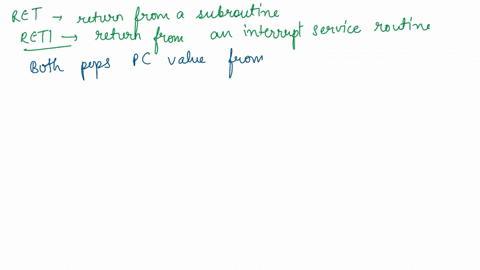 RET → return from a subroutine
RETI → return from an interrupt service routine
Both pops PC value from